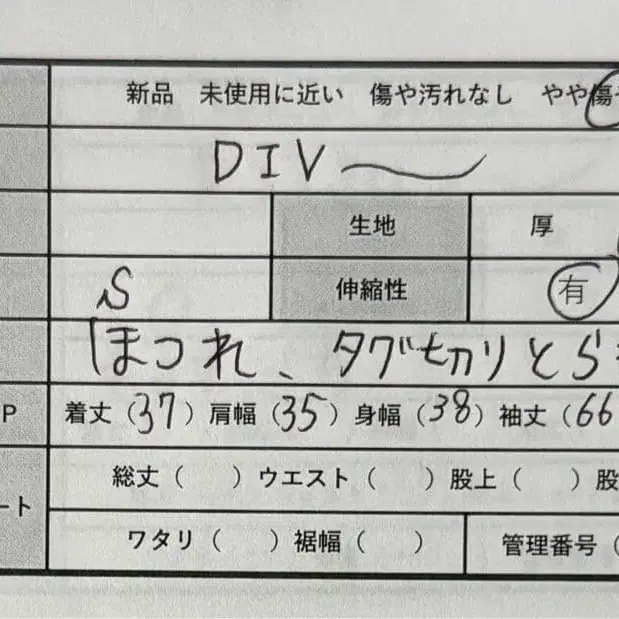 新品 未使用に近い 傷や汚れなし やや傷や
DIV
生地 厚
S 伸縮性 有
ほつれ、タグ切りとら
P 着丈(37)肩幅(35)身幅(38)袖丈(66
総丈( )ウエスト( )股上( )股
ート
ワタリ( )裾幅( ) 管理番号(